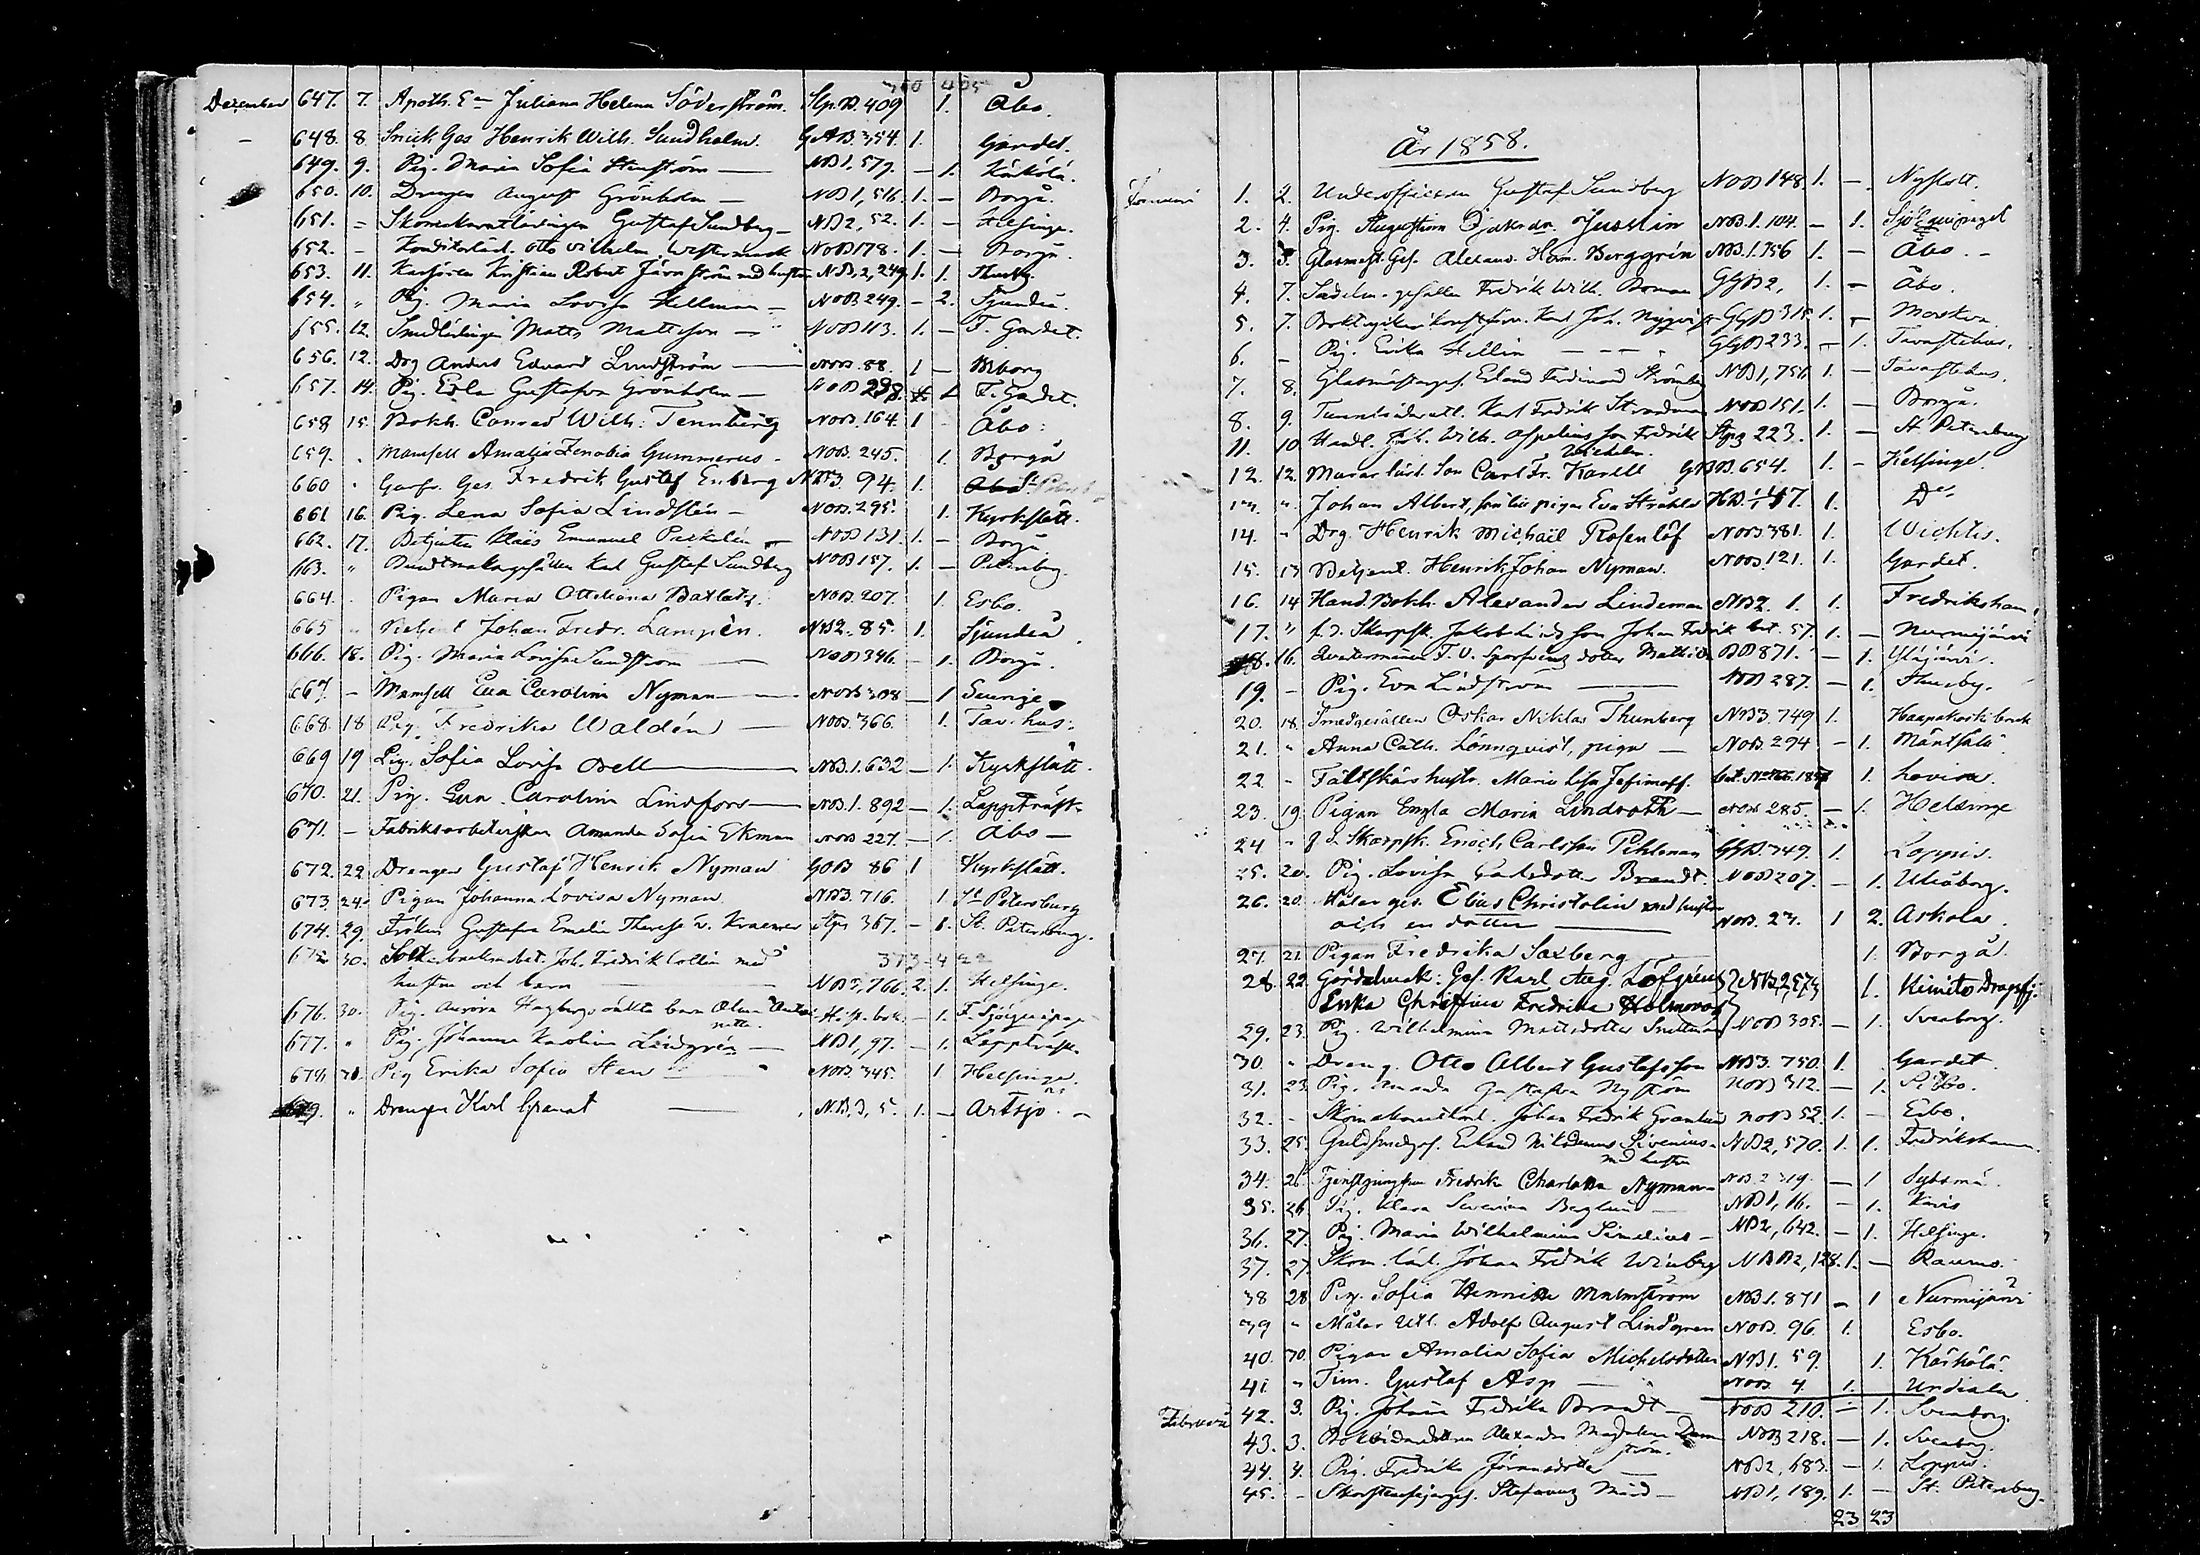 400 405
December 647. 7. Apoth. Juliana Helena Söderström. Slp. B. 409 1. Åbo.
– 648. 8 Snick Ges Henrik Wilh. Sundholm. GAB 354. 1. Gardet.
649. 9. Pig. Maria Sofia — NB1, 579. – 1. Kärkölä.
650. 10. Drengen August Grönholm — NB1, 516. 1. – Borgå.
651. = Gustaf Sundberg – NB2, 52. 1. – Helsinge.
652. – Konditorlärl. Otto Wilhelm Westermark NoB178. 1. – Borgå.
653. 11. Kristian Robert Järnström med hustru NB, 2, 249. 1. 1. Thusby.
654. " Pig. Maria Lovisa Hellman – NoB 249. – 2. Sjundeå.
655. 12. Smedlärlingen Matts Mattsson – NoB113. 1. – F. Gardet.
656. 12. Drg Anders Edvard Lindström — NoB. 88. 1 – Wiborg
657. 14. Pig. Edla Gustafva Grönholm — NoB 298. 1 F. Gardet.
658 15. Bokh. Conrad Wilh. Tennberg NoB. 164. 1 Åbo.
659. . Mamsell Amalia Zenobia Gummerus. NoB. 245. 1. Borgå
660 " Garfv. Ges. Fredrik Gustaf Enberg NB3 94. 1. Åbo St. Petersb.
661 16. Pig. Lena Sofia Lindstén – NoB. 295. 1. Kyrkslätt.
662. 17. Betjenten Klaes Emanuel NoB 131. 1. – Borgå
663. " Buntmakaregesällen Karl Gustaf Sundberg NoB 157. 1. – Petersburg.
664. . Pigan Maria Ottiliana NoB. 207. 1. Esbo.
665 " Betjent Johan Fredr. Lampén. NB2. 85. 1. Sjundeå.
666. 18. Pig. Maria Lovisa Sundström — NoB 346. – 1. Borgå.
667. – Mamsell Eva Carolina Nyman — NoB 308 — 1 Sverige
668. 18 Pig. Fredrika Waldén — NoB. 366. 1. Tav:hus.
669 19 Pig. Sofia Lovisa Orell — NB.1.632 – 1. Kyrkslätt.
670. 21. Pig. Eva Carolina Lindfors — NB.1.892 – 1. Lappträsk.
671. – Fabriksarbeterskan Amanda Sofia Ekman NoB 227. – 1. Åbo –
672. 22 Drengen Gustaf Henrik Nyman GOB 86 1 Kyrkslätt.
673. 24. Pigan Johanna Lovisa Nyman NB3. 716. 1 St Petersburg
674. 29. Fröken Gustafva Emelie Therese v. Kraemer Stp 367. – 1. St. Petersburg.
675 30. Joh. Fredrik Collin med 373 – 422
hustru och barn — NB3, 766. 2. 1. Helsinge.
676. 30. Pig. Aurora Hagbergs oäkta barn Alma
. – 1. F. Sjöequipage
677. " Pig. Johanna Karolina Lindgrén — NB1, 97. – 1. Lappträsk.
678. 31. Pig Erika Sofia Sten — NoB. 345. 1. Helsinge.
679. " Drengen Karl Granat — NB,3, 5. 1. – Artsjö. –
År 1858.
Januari 1. 2. Underofficeren Gustaf Sundberg NoB 148 1. – Nyslott.
2. 4. Pig. Augustina Justin NB.1.104. – 1. Sjö Equipaget
3. 5. Glasmest. Ges. Alexand. Herm. Berggrén NB.1.756 1. – Åbo. –
4. 7. Sadelm. gesällen Fredrik Wilh. Boman GGB2, 1. – Åbo.
5. 7. Karl Joh. Nyqvist GGB 315 1. – Moskva.
6. – Pig. Erika Hellin – – – GGB 233. – 1. Tavastehus.
7. 8. Glasmästaregs. Erland Ferdinand Strömberg NB1, 751 1. – Tavastehus.
8. 9. Karl Fredrik Strandman NoB 151. 1. – Borgå.
11. 10 Handl. Joh. Wilh. Aspelins son Fredrik Wilhelm. Stp 223. 1. – St. Petersburg
12. 12. Murar lärl. Son Carl Fr. Karell GBB. 654. 1. – Helsinge.
13. " Johan Albert, son till pigan Eva Ståhle HB. 157. 1. Do
14. " Drg. Henrik Michaël Rosenlöf NoB 381. 1. Wichtis.
15. 13 Betjent. Henrik Johan Nyman. NoB. 121. 1. Gardet.
16. 14 Hand. Bokh. Alexander Lindeman NB2. 1. 1. Fredrikshamn
17. " f.d. Skarpsk. Jakob Linds son Johan Fredrik bet. 57. 1. – Nurmijärvi
18. 16. dotter Mathilda BB 871. – 1. Ylöjärvi.
19. – Pig. Eva Lindström — NoB 287. – 1. Thusby.
20. 18. Smedgesällen Oskar Niklas Thunberg NB3. 749 1. Haapakoski bruk
21. " Anna Cath. Lönnqvist, piga – NoB. 294 – 1. Mäntsälä
22 – Fältskärs hustr. Maria Lisa Jefimoff. bet. 1857 1. Lovisa.
23. 19. Pigan Engla Maria Lindroth – NoB. 285. – 1. Helsinge
24 " f.d. Skarpsk. Enoch Carlsson Pihlman GGB. 749. 1. Loppis.
25. 20. Pig. Lovisa Carlsdotter Brandt. NoB 207. – 1. Uleåborg.
26. 20. Målar ges. Elias Christolin med hustru
och en dotter — NoB. 27. 1 2. Askola.
27. 21. Pigan Fredrika Saxberg — 1. Borgå.
28. 22. Gördelmak: Ges. Karl Aug. Löfgrens NB2573 1. Kimito Dragsfj.
Enka Christina Fredrika Holmroos
29. 23. Pig. Wilhelmina Mattsdotter Snellman NoB 305. – 1. Sveaborg.
30. " Dreng. Otto Albert Gustafsson NB3. 750. 1. Gardet
31. 23. Pig. Amanda Gustafva Nyström NoB 312. – 1. Sibbo.
32. – Johan Fredrik Granlund NoB 52. 1. – Esbo.
33. 25. Guldsmedges. Erland Nikodemus Sirenius – med hustru NB2, 570. 1. 1. Fredrikshamn
34. 26. Tjenstjungfrun Fredrika Charlotta Nyman – NB. 2 319. – 1 Sysmä.
35. 26. Pig. Klara Severina Berglund — NB1, 16. – 1. Karis
36. 27. Pig. Maria Wilhelmina Simelius – NB2, 642. – 1. Helsinge.
37. 27. Skom. lärl. Johan Fredrik Winberg NB2, 128. 1. – Raumo.
38 28. Pig. Sofia Henrika Malmström NB1. 871 – 1 Nurmijärvi
39 " Målar Utl. Adolf August Lindgren NoB. 96 1. Esbo.
40. 30. Pigan Amalia Sofia Michelsdotter NB1. 59. 1. Kärkölä
41. " Tim. Gustaf Asp — NoB. 4. 1. Urdiala
Februari 42. 3. Pig. Johanna Fredrika Brandt – NoB 210. – 1. Sveaborg.
43. 3. Alexandra Magdalena NoB 218. – 1. Sveaborg.
44. 4. Pig. Fredrika Göransdotter — NB2, 683. – 1. Loppis.
45. – Stefanus – NB1, 189. 1. – St. Petersburg.
23 23